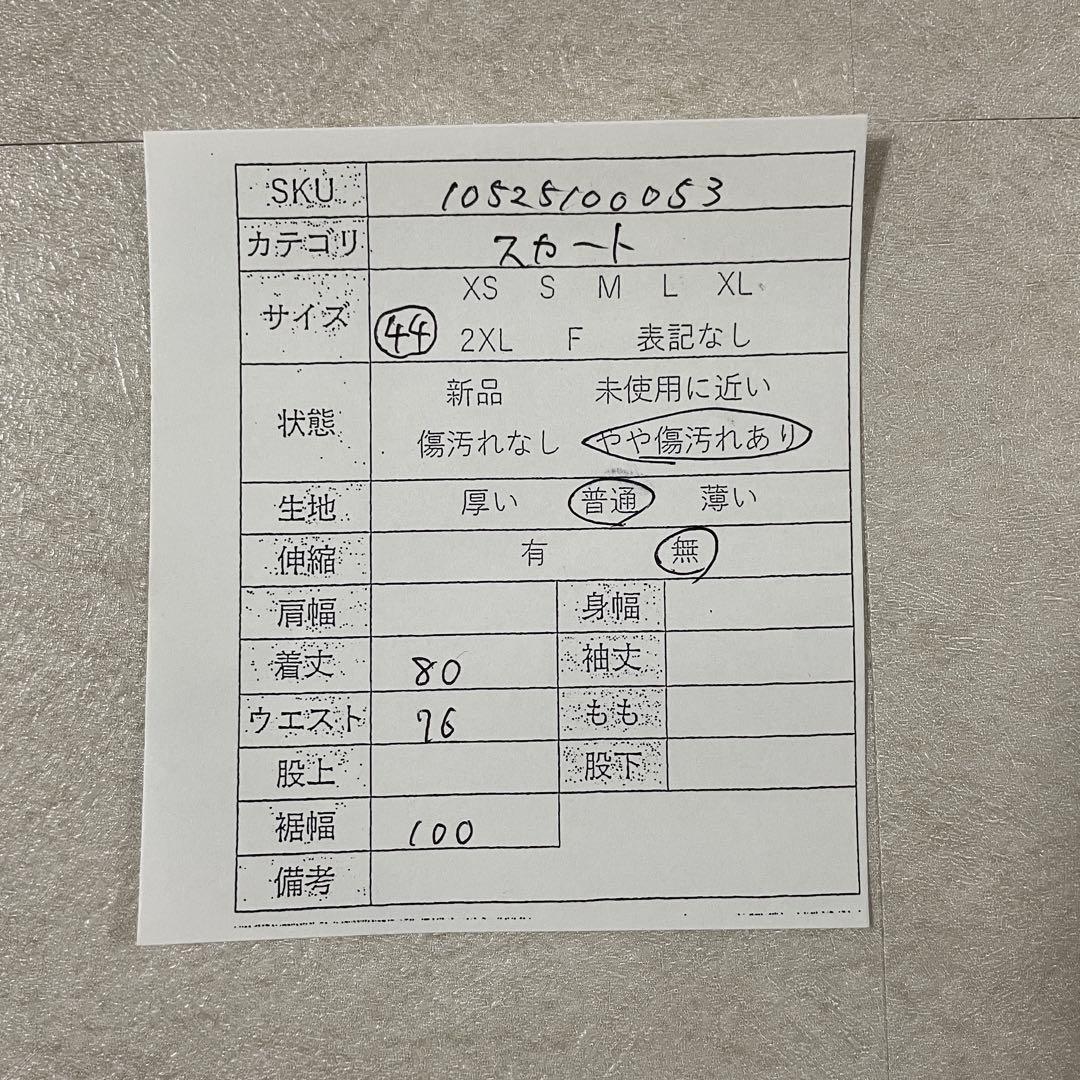 SKU 10525100053
カテゴリ スカート
サイズ XS S M L XL
44 2XL F 表記なし
状態 新品 未使用に近い
傷汚れなし やや傷汚れあり
生地 厚い 普通 薄い
伸縮 有 無
肩幅 身幅
着丈 80 袖丈
ウエスト 76 もも
股上 股下
裾幅 100
備考